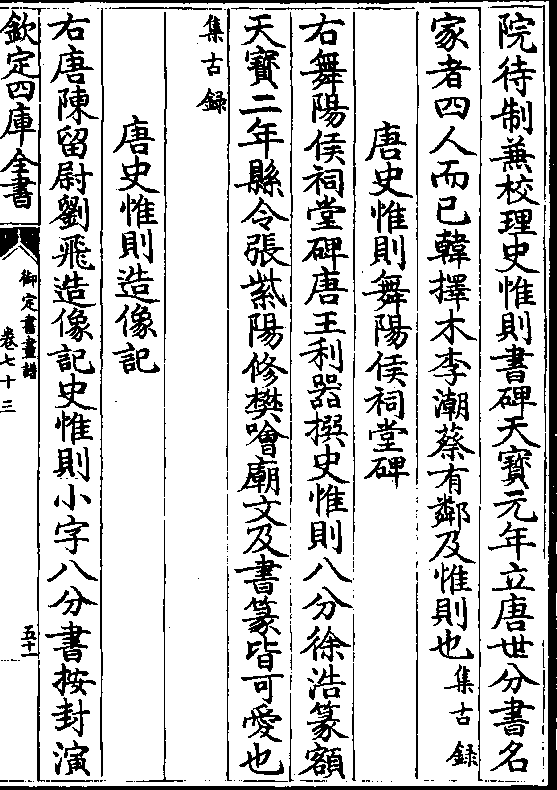 院待制兼校理史惟則書碑天寶元年立唐世分書名
家者四人而已韓擇木李潮蔡有鄰及惟則也集古錄
唐史惟則舞陽侯祠堂碑
右舞陽侯祠堂碑唐王利器撰史惟則八分徐浩篆額
天寶二年縣令張紫陽修樊噲廟文及書篆皆可愛也
集古録
唐史惟則造像記
右唐陳留尉劉飛造像記史惟則小字八分書按封演
欽定四庫全書
御定書畫譜
卷七十三
五十一